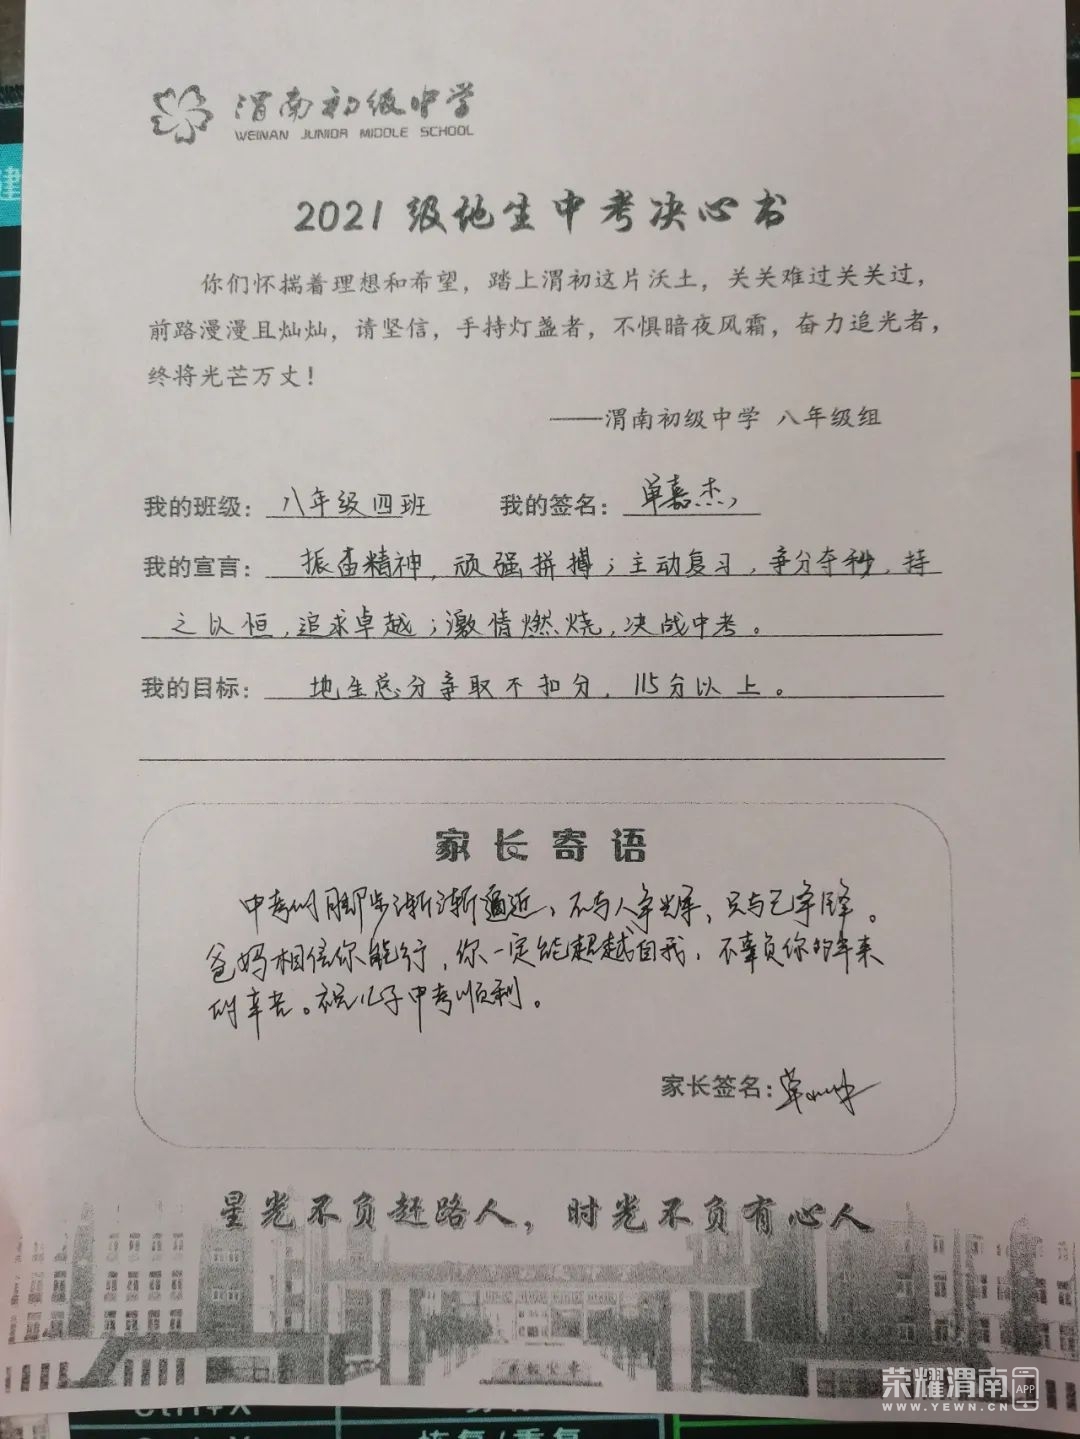 渭南初级中学
WEINAN JUNIOR MIDDLE SCHOOL
2021级地生中考决心书
你们怀揣着理想和希望，踏上渭初这片沃土，关关难过关关过，
前路漫漫且灿灿，请坚信，手持灯盏者，不惧暗夜风霜，奋力追光者，
终将光芒万丈！
——渭南初级中学 八年级组
我的班级：八年级四班 我的签名：单嘉杰
我的宣言：振奋精神，顽强拼搏；主动复习，争分夺秒，持
之以恒，追求卓越；激情燃烧，决战中考。
我的目标：地生总分争取不扣分，115分以上。
家长寄语
中考的脚步渐渐逼近，不与人争光辉，只与己争锋。
爸妈相信你能行，你一定能超越自我，不辜负你的年来
的辛苦。祝儿子中考顺利。
家长签名：单
星光不负赶路人，时光不负有心人
荣耀渭南APP
WWW.YEWN.CN
Ctrl+X
恢复/重复
建